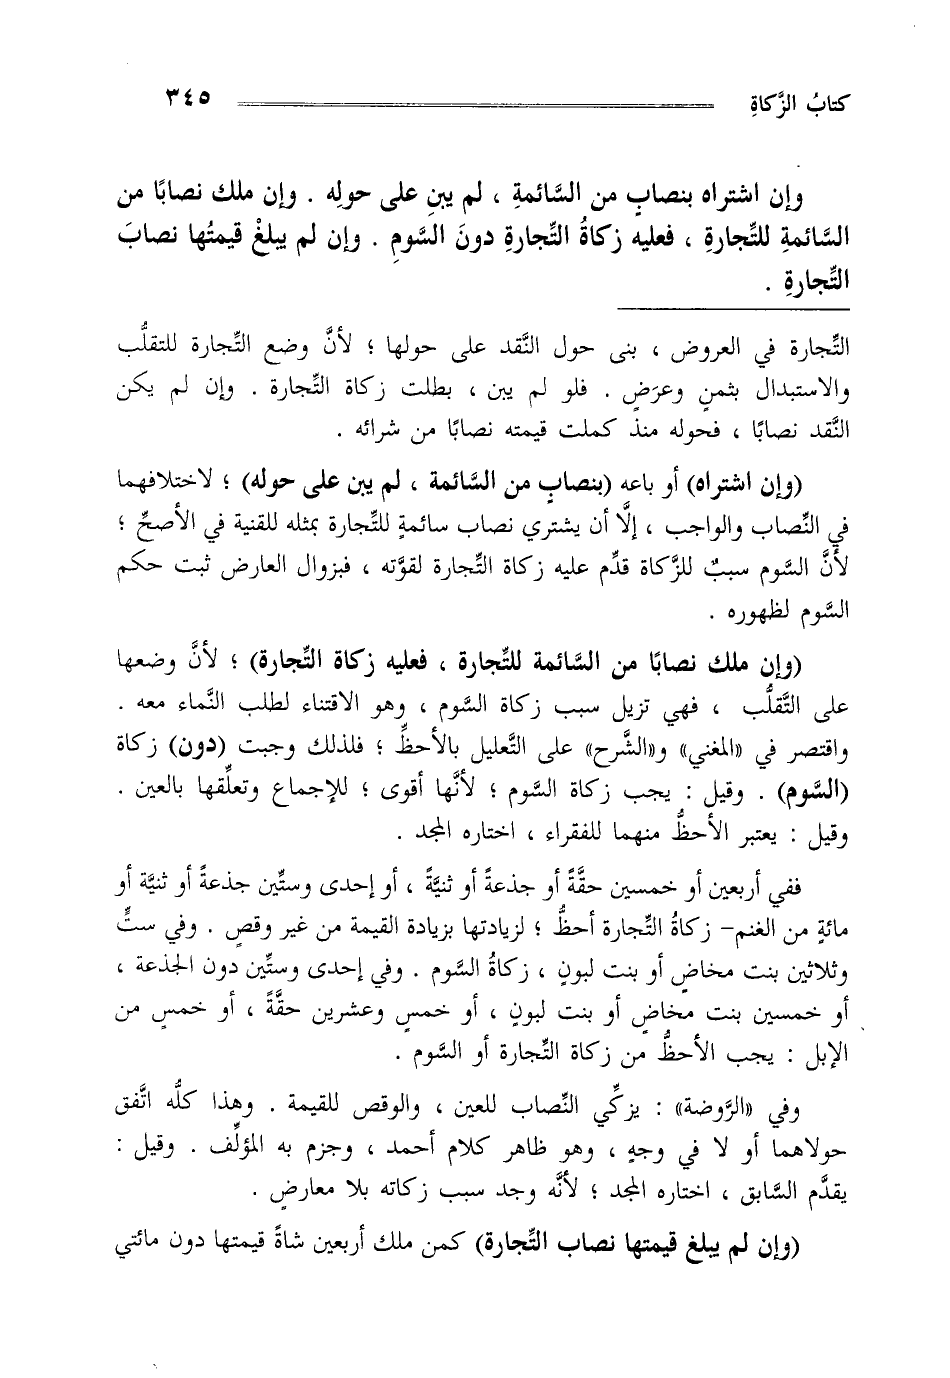 كتابُ الزَّكاةِ ٣٤٥
وإن اشتراه بنصابٍ من السَّائمةِ ، لم يبنِ على حولِه . وإن ملك نصابًا من
السَّائمةِ للتِّجارةِ ، فعليه زكاةُ التِّجارةِ دونَ السَّومِ . وإن لم يبلغْ قيمتُها نصابَ
التِّجارةِ .
التِّجارة في العروض ، بنى حول النَّقد على حولها ؛ لأنَّ وضع التِّجارة للتقلُّب
والاستبدال بثمنٍ وعرَضٍ . فلو لم يبن ، بطلت زكاة التِّجارة . وإن لم يكن
النَّقد نصابًا ، فحوله منذ كملت قيمته نصابًا من شرائه .
(وإن اشتراه) أو باعه (بنصابٍ من السَّائمة ، لم يبن على حوله) ؛ لاختلافهما
في النِّصاب والواجب ، إلَّا أن يشتري نصاب سائمةٍ للتِّجارة بمثله للقنية في الأصحِّ ؛
لأنَّ السَّوم سببٌ للزَّكاة قدِّم عليه زكاة التِّجارة لقوَّته ، فبزوال العارض ثبت حكم
السَّوم لظهوره .
(وإن ملك نصابًا من السَّائمة للتِّجارة ، فعليه زكاة التِّجارة) ؛ لأنَّ وضعها
على التَّقلُّب ، فهي تزيل سبب زكاة السَّوم ، وهو الاقتناء لطلب النَّماء معه .
واقتصر في «المغني» و«الشَّرح» على التَّعليل بالأحظِّ ؛ فلذلك وجبت (دون) زكاة
(السَّوم) . وقيل : يجب زكاة السَّوم ؛ لأنَّها أقوى ؛ للإجماع وتعلُّقها بالعين .
وقيل : يعتبر الأحظُّ منهما للفقراء ، اختاره المجد .
ففي أربعين أو خمسين حقَّةً أو جذعةً أو ثنيَّةً ، أو إحدى وستِّين جذعةً أو ثنيَّة أو
مائةٍ من الغنم- زكاةُ التِّجارة أحظُّ ؛ لزيادتها بزيادة القيمة من غير وقصٍ . وفي ستٍّ
وثلاثين بنت مخاضٍ أو بنت لبونٍ ، زكاةُ السَّوم . وفي إحدى وستِّين دون الجذعة ،
أو خمسين بنت مخاضٍ أو بنت لبونٍ ، أو خمسٍ وعشرين حقَّةً ، أو خمسٍ من
الإبل : يجب الأحظُّ من زكاة التِّجارة أو السَّوم .
وفي «الرَّوضة» : يزكِّي النِّصاب للعين ، والوقص للقيمة . وهذا كلُّه اتَّفق
حولاهما أو لا في وجهٍ ، وهو ظاهر كلام أحمد ، وجزم به المؤلِّف . وقيل :
يقدَّم السَّابق ، اختاره المجد ؛ لأنَّه وجد سبب زكاته بلا معارضٍ .
(وإن لم يبلغ قيمتها نصاب التِّجارة) كمن ملك أربعين شاةً قيمتها دون مائتي